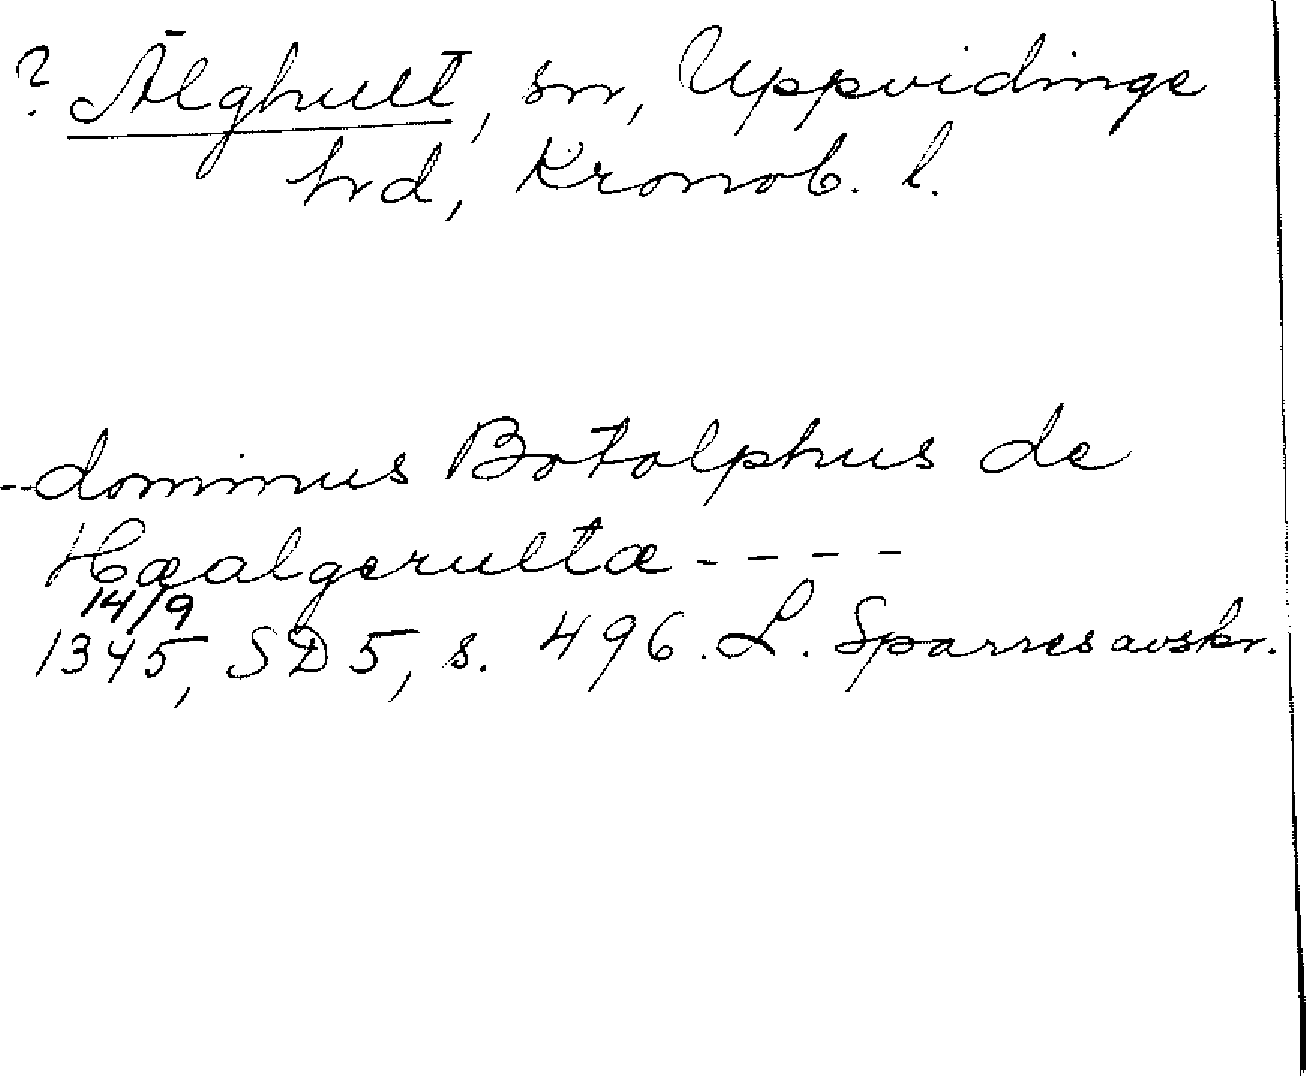 ? Älghult, sn, Uppvidinge
hrd, Kronob. l.
--dominus Botolphus de
Hæalgerultæ - - - -
14/9
1345, SD 5, s. 496. L. Sparres avskr.